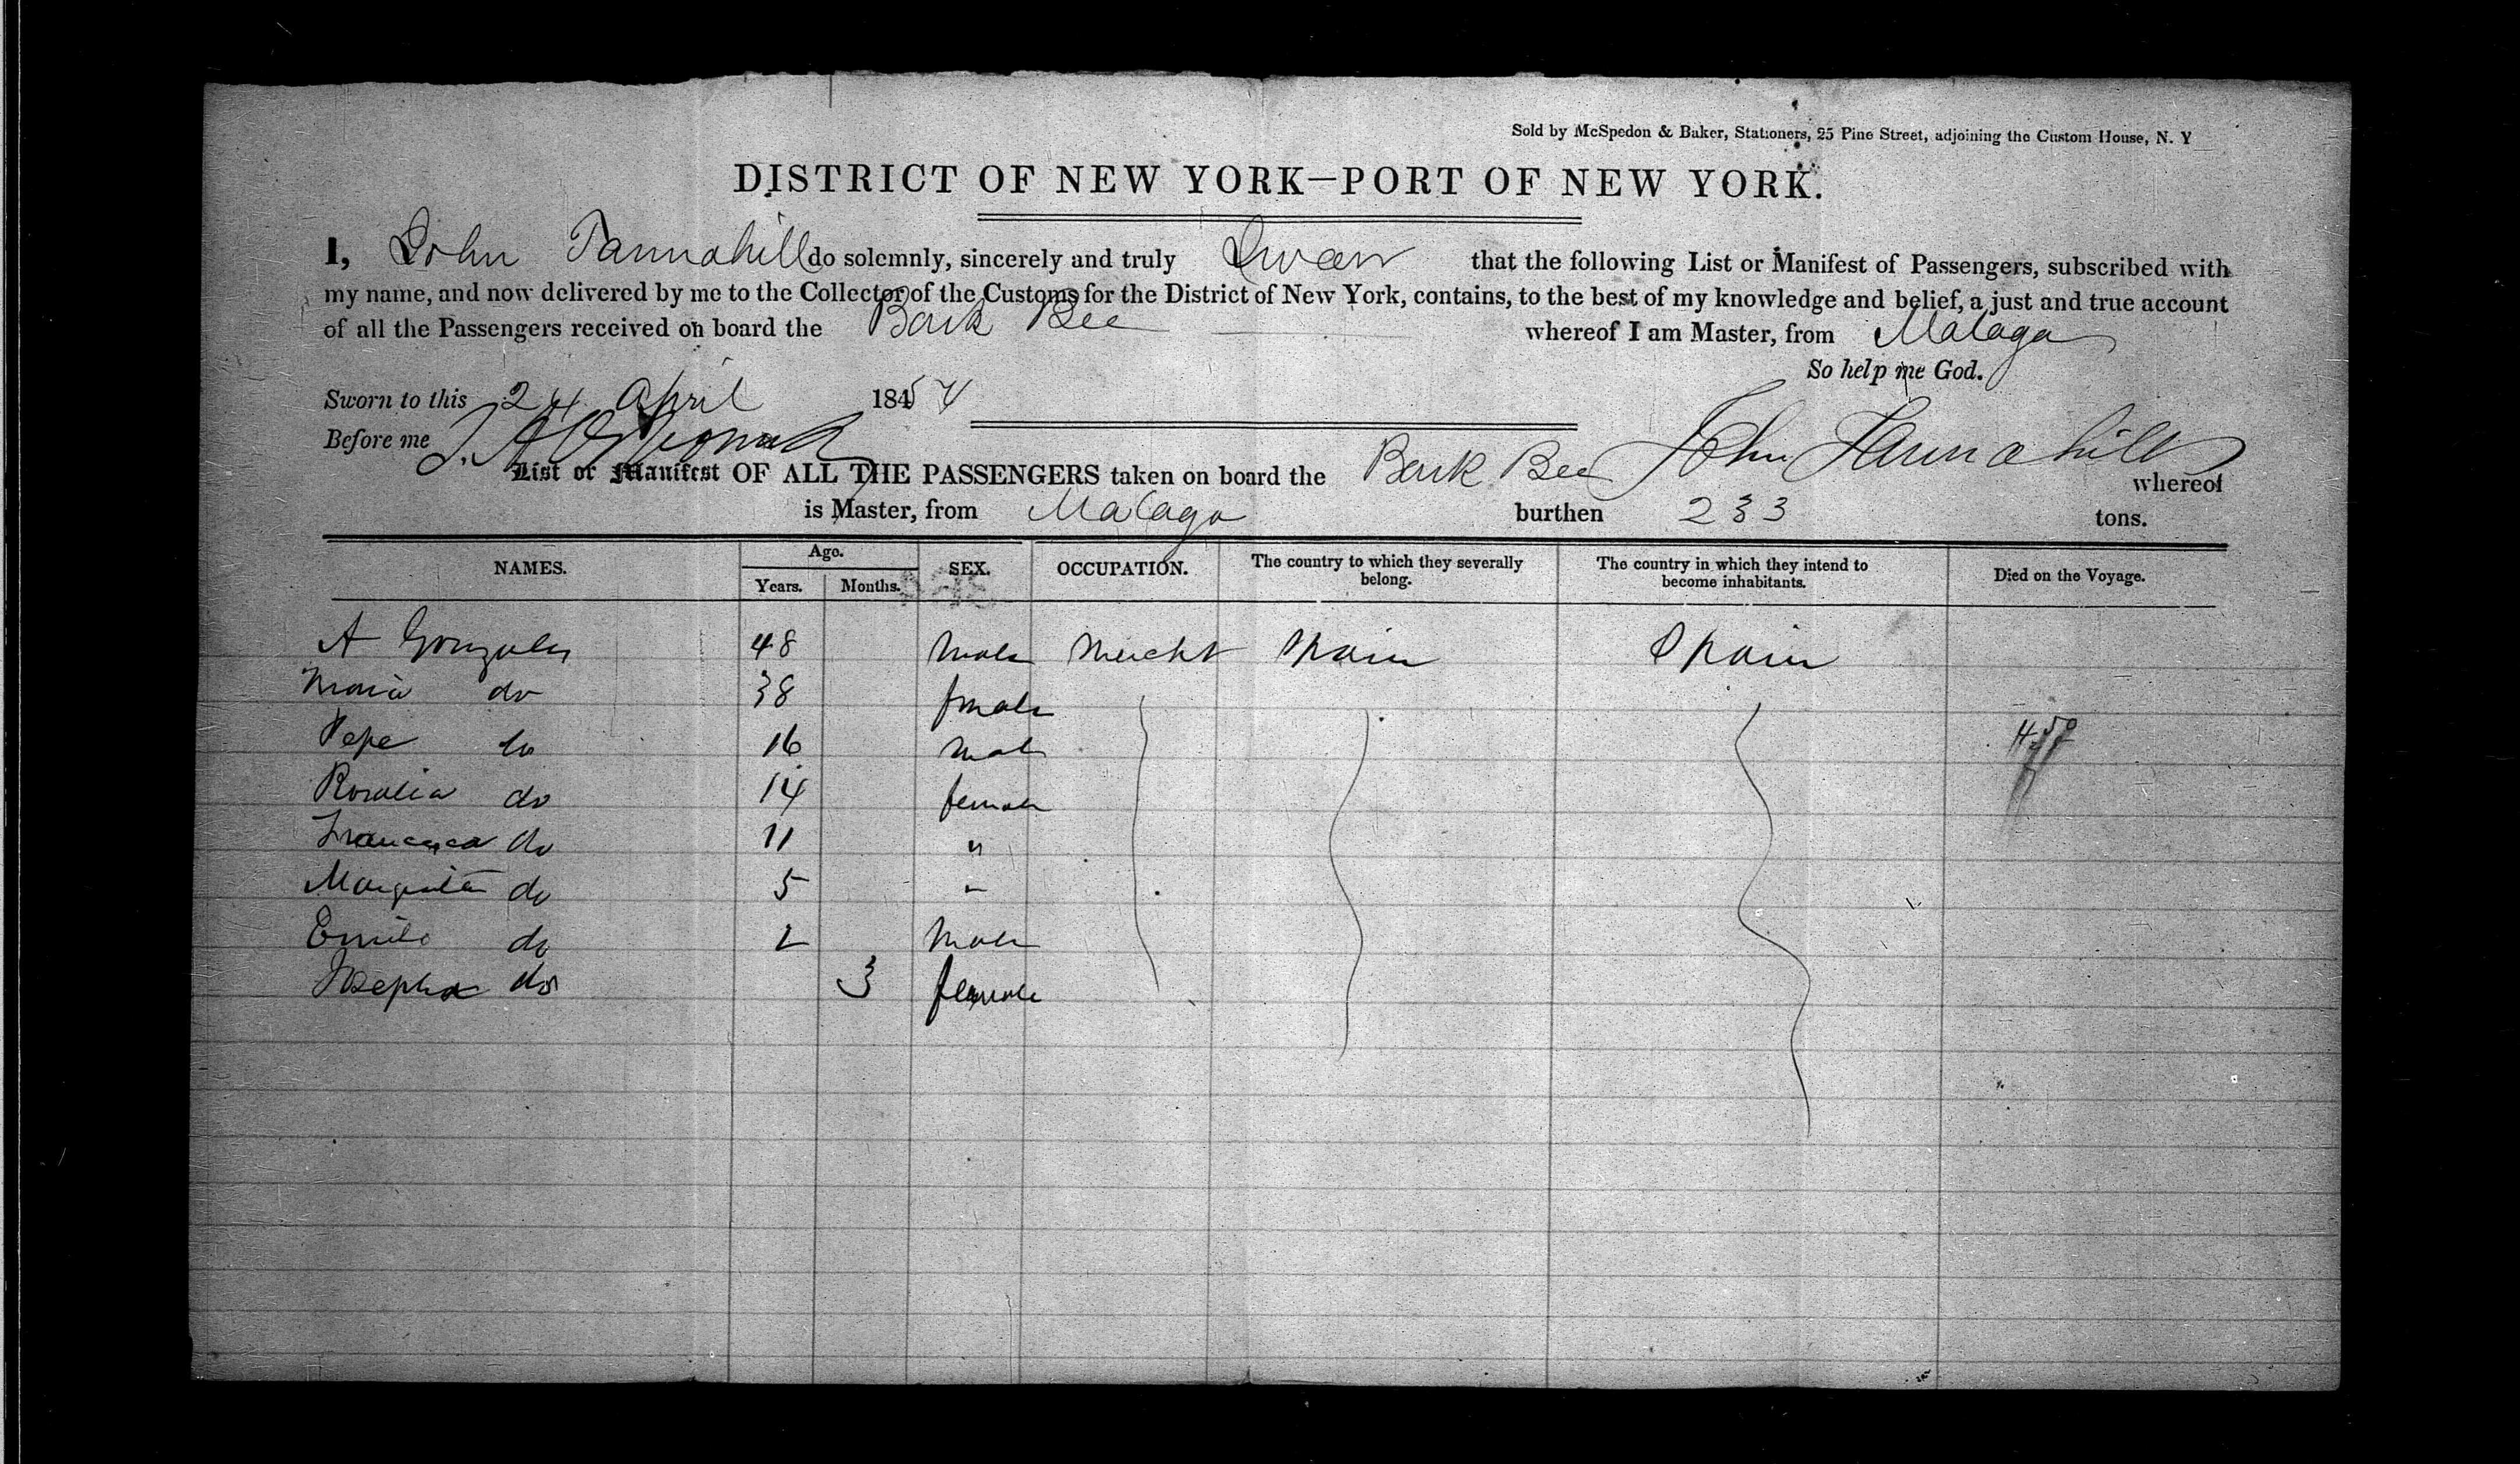 Sold by McSpedon & Baker, Stationers, 25 Pine Street, adjoining the Custom House, N. Y
DISTRICT OF NEW YORK—PORT OF NEW YORK.
I, John Tannahill do solemnly, sincerely and truly Swear that the following List or Manifest of Passengers, subscribed with
my name, and now delivered by me to the Collector of the Customs for the District of New York, contains, to the best of my knowledge and belief, a just and true account
of all the Passengers received on board the Bark Bee whereof I am Master, from Malaga
So help me God.
Sworn to this 24 April 1854
Before me John Tannahill
List or Manifest OF ALL THE PASSENGERS taken on board the Bark Bee whereof
is Master, from Malaga burthen 233 tons.
NAMES. Age. Years. Months. SEX. OCCUPATION. The country to which they severally belong. The country in which they intend to become inhabitants. Died on the Voyage.
A Gonzales 48 Male Mercht Spain Spain
Maria do 38 female
Pepe do 16 Male
Rosalia do 14 female
Francisca do 11 "
Margarita do 5 "
Emilo do 2 Male
Josepha do 3 female